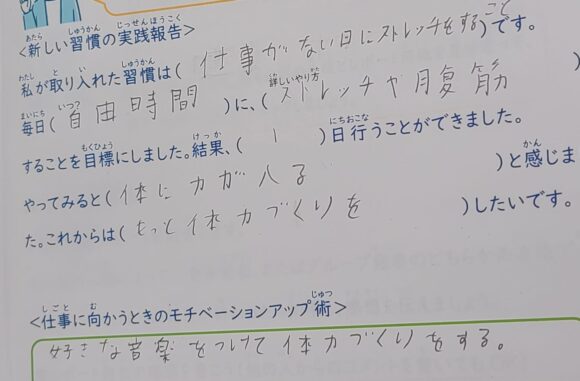 <新しい習慣の実践報告>
私が取り入れた習慣は(仕事がない日にストレッチをすること)です。
毎日(自由時間)に、(ストレッチや腹筋)
することを目標にしました。結果、(1)日行うことができました。
やってみると(体に力が入る)と感じま
た。これからは(もっと体力づくりを)したいです。
<仕事に向かうときのモチベーションアップ術>
好きな音楽をつけて体力づくりをする。